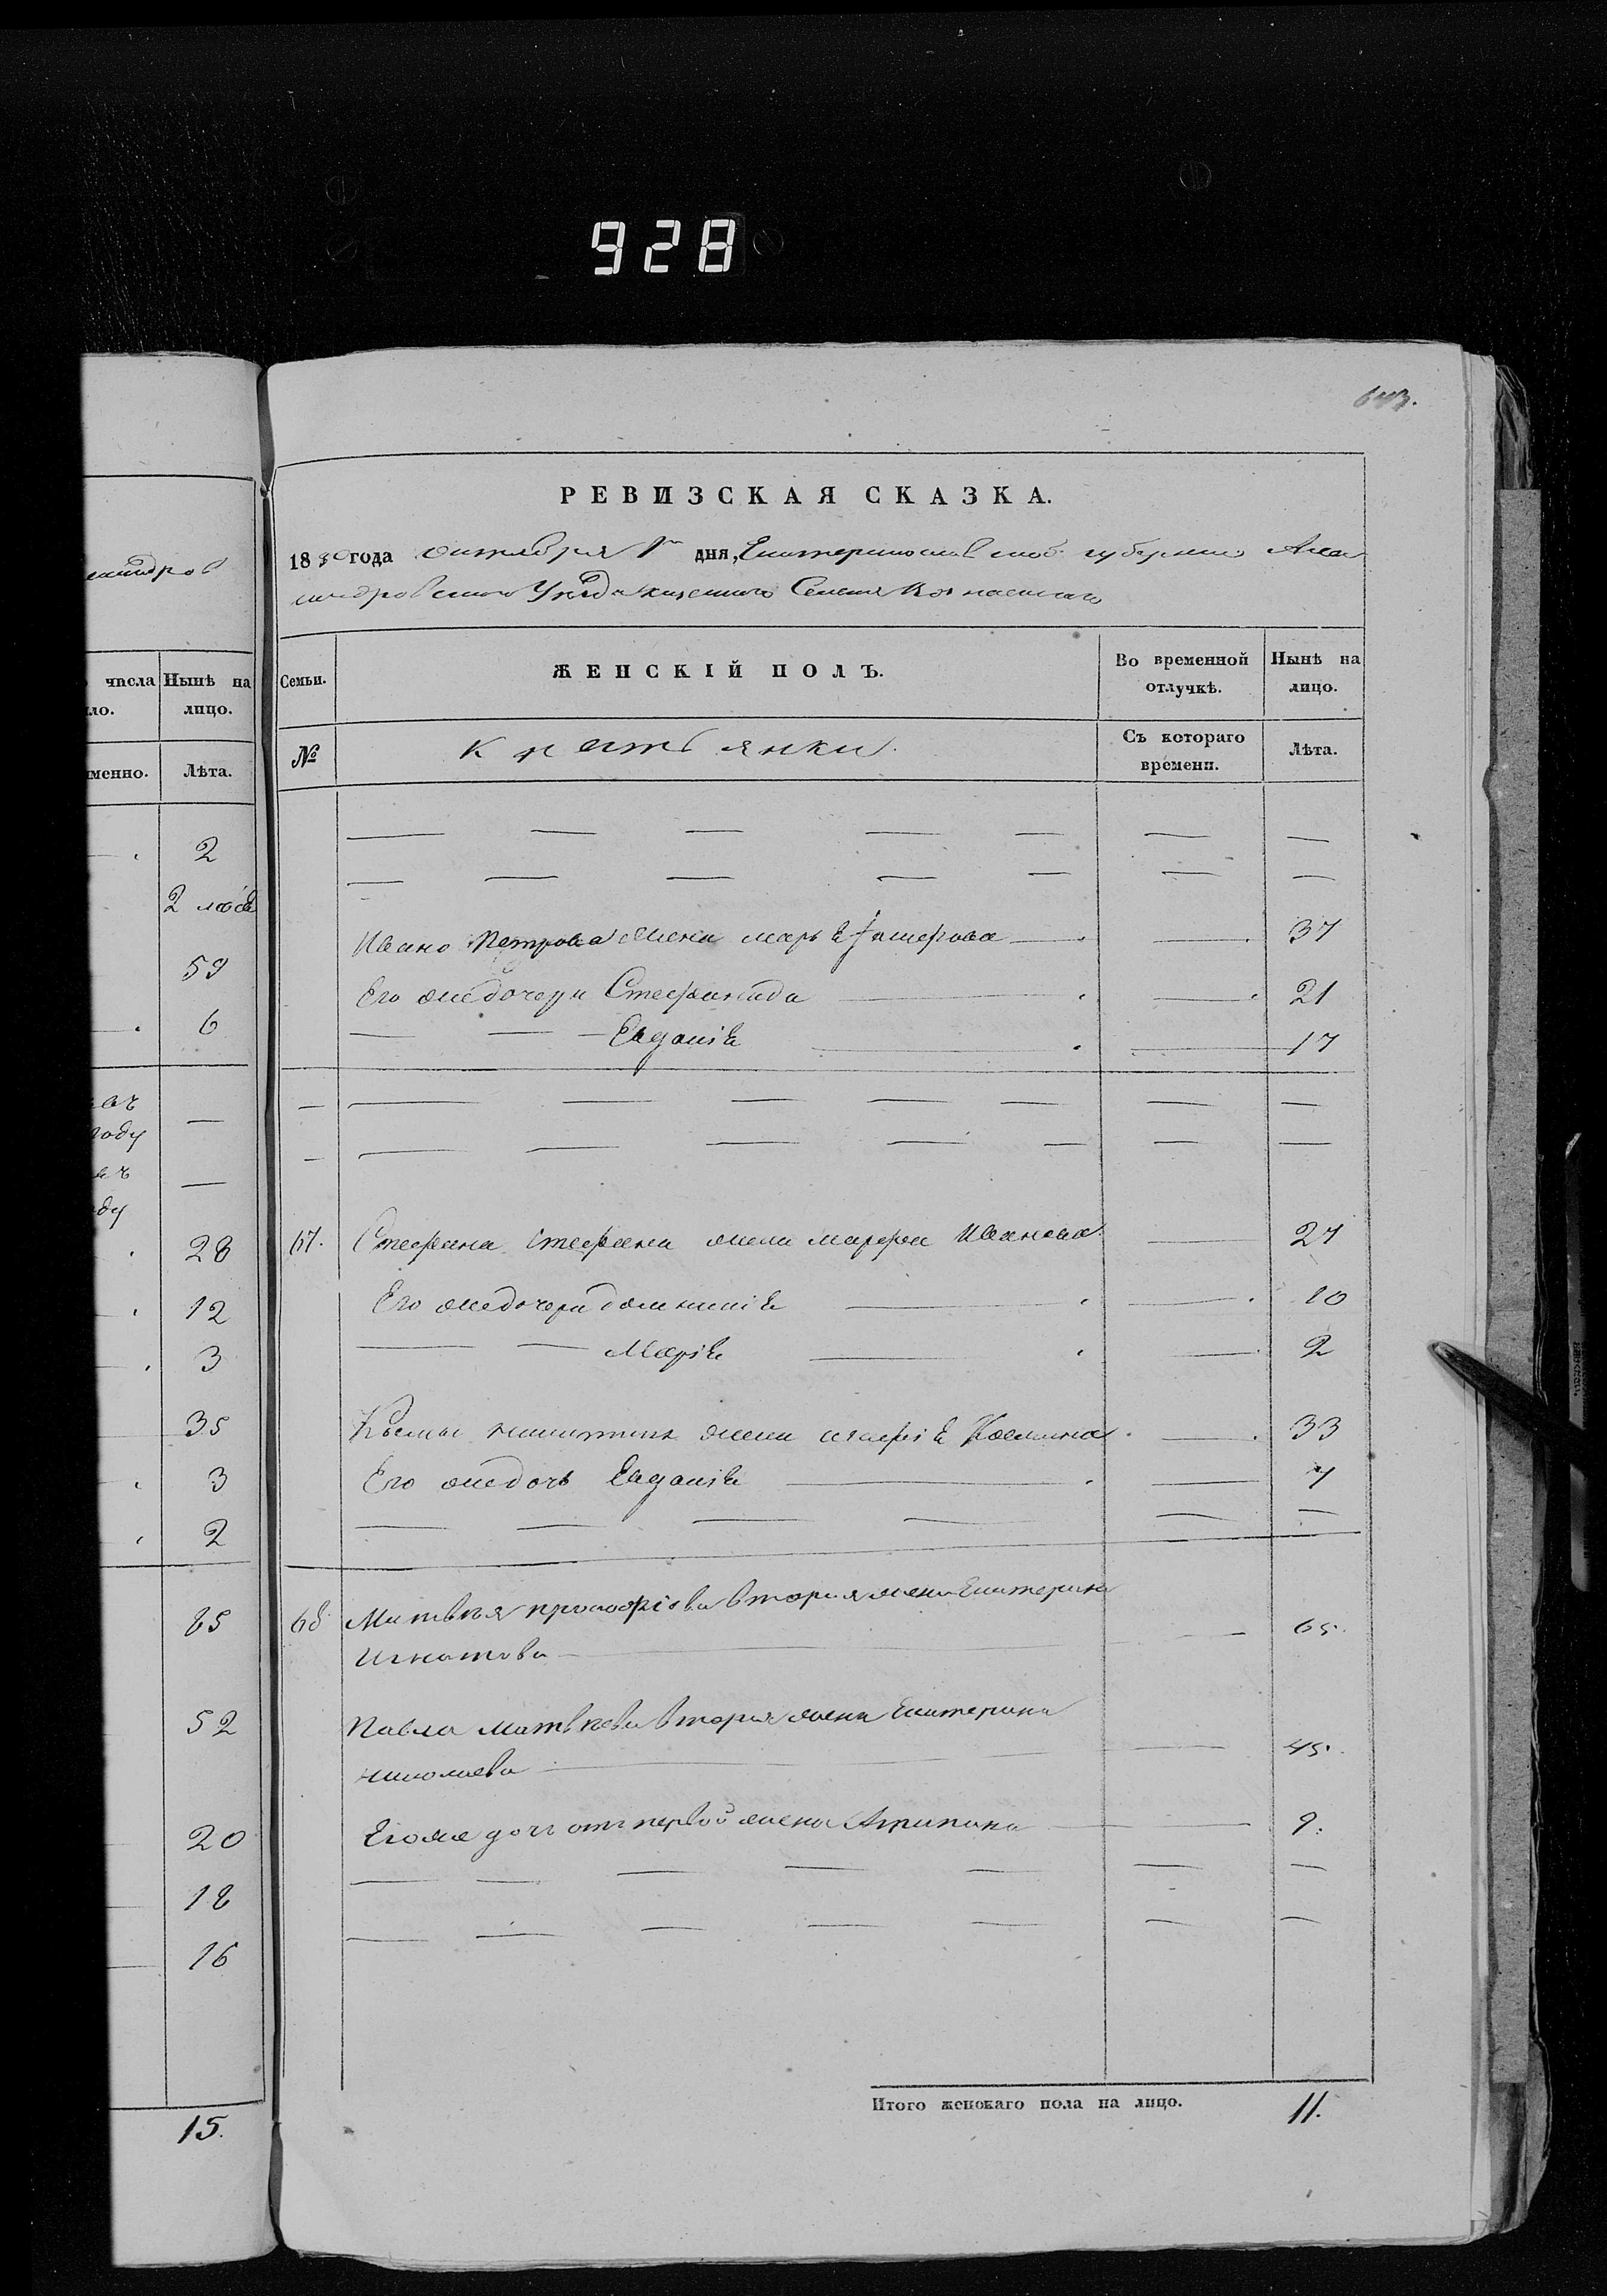 928
643.
РЕВИЗСКАЯ СКАЗКА.
1850 года октября 1го дня, Екатеринославской губернии Алек
сандровского Уезда казенного Селения
ксандров
числа
ло.
Нынѣ на
лицо.
Семьи.
ЖЕНСКІЙ ПОЛЪ.
Во временной
отлучкѣ.
Нынѣ на
лицо.
именно.
Лѣта.
№
Крестьянки
Съ котораго
времени.
Лѣта.
2
2
59
6
году
ду
28
12
3
35
3
2
85
52
20
18
16
15.
Ивана Петрова жена Марья 37
Его же дочери Стефанида 21
Евдокія 17
67. Стефана Стефана жена Марфа Иванова 27
Его же дочери Домникія 10
Марія 2
Козмы Никитина жена Козмина 33
Его же дочь Евдокія 7
68 Матвѣя Прокофіева вторая жена Екатерина
Игнатова 65.
Павла Матвѣева вторая жена Екатерина
Николаева 45.
Его же дочь отъ первой жены Агрипина 9.
Итого женскаго пола на лицо. 11.